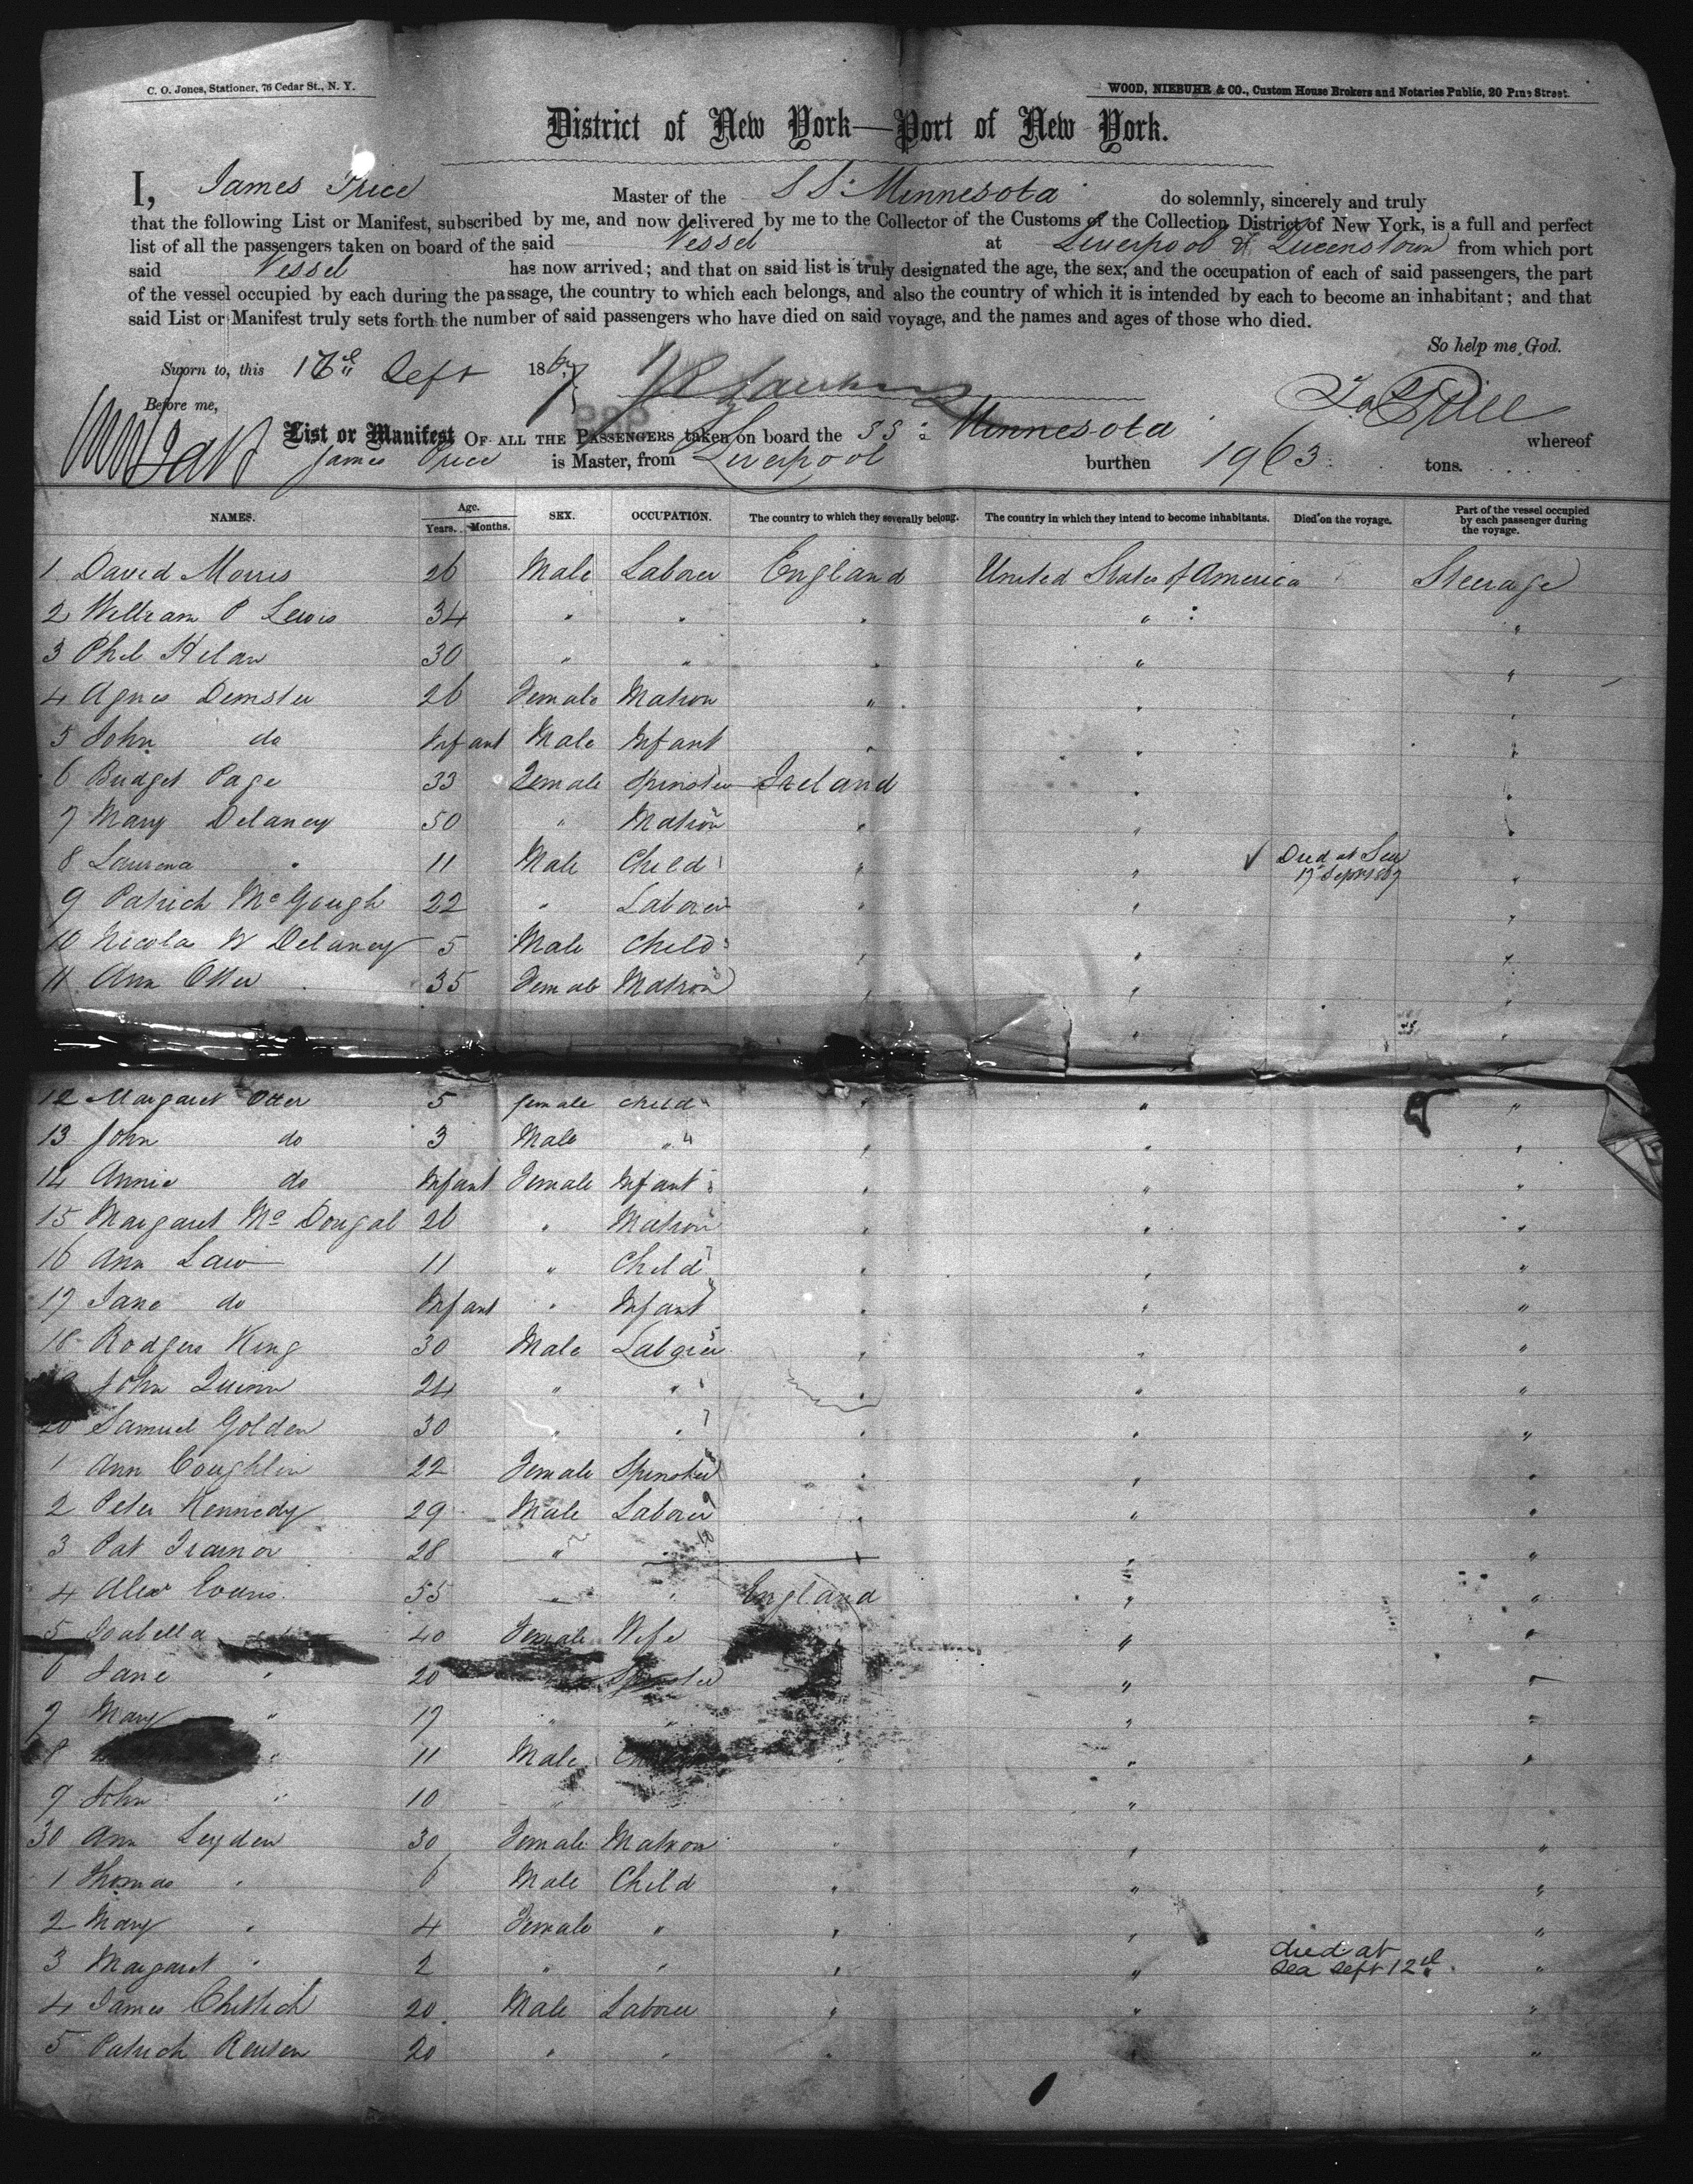 C. O. Jones, Stationer, 76 Cedar St., N. Y.
WOOD, NIEBUHR & CO., Custom House Brokers and Notaries Public, 20 Pine Street.
District of New York—Port of New York.
I, James Price Master of the SS. Minnesota do solemnly, sincerely and truly
that the following List or Manifest, subscribed by me, and now delivered by me to the Collector of the Customs of the Collection District of New York, is a full and perfect
list of all the passengers taken on board of the said Vessel at Liverpool & Queenstown from which port
said Vessel has now arrived; and that on said list is truly designated the age, the sex, and the occupation of each of said passengers, the part
of the vessel occupied by each during the passage, the country to which each belongs, and also the country of which it is intended by each to become an inhabitant; and that
said List or Manifest truly sets forth the number of said passengers who have died on said voyage, and the names and ages of those who died.
So help me God.
Sworn to, this Sept 1867
Before me,
List or Manifest OF ALL THE PASSENGERS taken on board the SS: Minnesota whereof
James Price is Master, from Liverpool burthen 1963 tons.
NAMES. Age. Years. Months. SEX. OCCUPATION. The country to which they severally belong. The country in which they intend to become inhabitants. Died on the voyage. Part of the vessel occupied by each passenger during the voyage.
1 David Morris 26 Male Laborer England United States of America Steerage
2 William P Lewis 34 " " " " "
3 Phil 30 " " " " "
4 Agnes Demster 26 Female Matron " " "
5 John do Infant Male Infant " " "
6 Bridget Page 33 Female Spinster Ireland " "
7 Mary Delaney 50 " Matron " " "
8 " 11 Male Child " " Died at Sea 17 Sept 1867 "
9 Patrick McGough 22 " Laborer " " "
10 Nicolas W Delaney 5 Male Child " " "
11 Ann Otter 35 Female Matron " " "
12 Margaret Otter 5 female child " " "
13 John do 3 Male " " " "
14 Annie do Infant Female Infant " " "
15 Margaret McDougal 26 " Matron " " "
16 Ann Law 11 " Child " " "
17 Jane do Infant " Infant " " "
18 Rodgers King 30 Male Laborer " " "
John Quinn 24 " " " " "
20 Samuel Golden 30 " " " " "
1 Ann Coughlin 22 Female Spinster " " "
2 Peter Kennedy 29 Male Laborer " " "
3 Pat Trainor 28 " " " " "
4 Alex Evans 55 " " England " "
5 Isabella " 40 Female Wife " "
6 Jane " 20 " Spinster " "
7 Mary " 17 " " " "
8 " 11 Male " " "
9 John " 10 " "
30 Ann Leyden 30 Female Matron " " "
1 Thomas " 6 Male Child " " "
2 Mary " 4 Female " " " "
3 Margaret " 2 " " " " died at sea Sept 12th "
4 James 20 Male Laborer " " "
5 Patrick 20 " " " " "